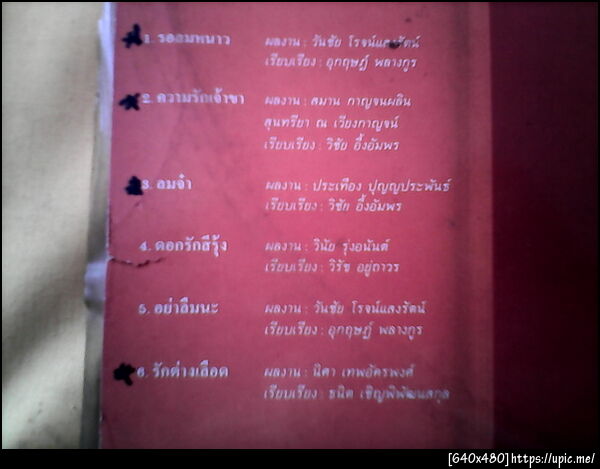 1. รอลมหนาว
ผลงาน : วันชัย โรจน์แสงรัตน์
เรียบเรียง : อุกฤษฏ์ พลางกูร
2. ความรักเจ้าขา
ผลงาน : สมาน กาญจนผลิน
สุนทรียา ณ เวียงกาญจน์
เรียบเรียง : วิชัย อึ้งอัมพร
3. ลมจ๋า
ผลงาน : ประเทือง ปุญญประพันธ์
เรียบเรียง : วิชัย อึ้งอัมพร
4. ดอกรักสีรุ้ง
ผลงาน : วินัย รุ่งอนันต์
เรียบเรียง : วิรัช อยู่ถาวร
5. อย่าลืมนะ
ผลงาน : วันชัย โรจน์แสงรัตน์
เรียบเรียง : อุกฤษฏ์ พลางกูร
6. รักต่างเลือด
ผลงาน : นิศา เทพอัครพงศ์
เรียบเรียง : ธนิต เชิญพิพัฒนสกุล
[640x480]https://upic.me/